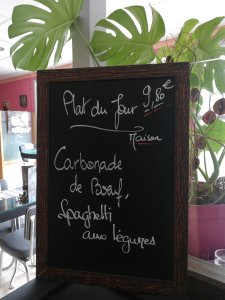 Plat du Jour 9,80€
Maison
Carbonade
de Bœuf,
Spaghetti
aux légumes